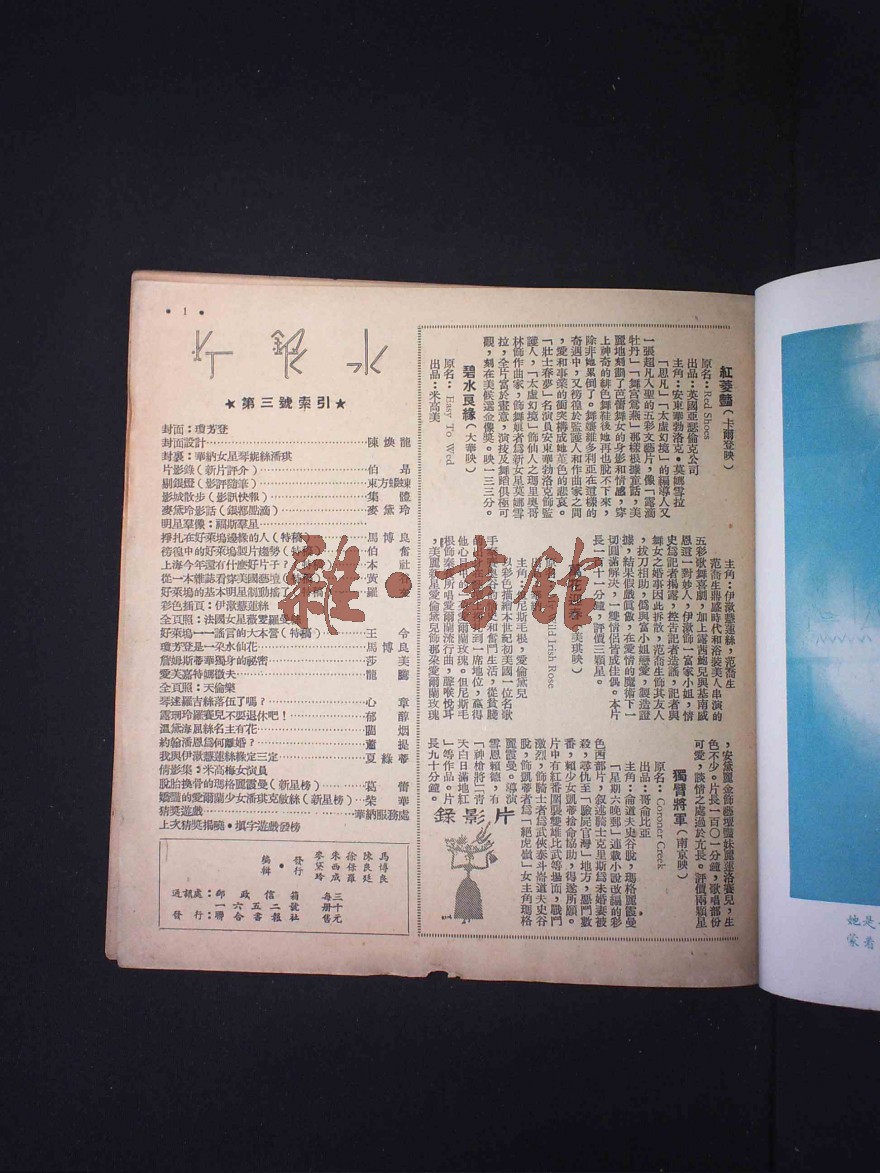 • 1 •
★ 第三號索引 ★
封面：瓊芳登
封面設計 陳煥龍
封裏：華納女星琴妮絲潘琪
片影錄（新片評介） 伯昂
剔銀燈（影評隨筆） 東方蝃蝀
影城散步（影訊快報） 集體
麥黛玲影話（銀都點滴） 麥黛玲
明星羣像：福斯羣星
掙扎在好萊塢邊緣的人（特稿） 馬博良
徬徨中的好萊塢製片趨勢（特稿） 伯奮
上海今年還有什麼好片子？ 本社
從一本雜誌看穿美國藝壇 黃
好萊塢的基本明星制動搖了（特稿） 羅
彩色插頁：伊漱慧蓮絲
全頁照：法國女星薇愛羅曼
好萊塢——謠言的大本營（特稿） 王令
瓊芳登是一朶水仙花 馬博良
詹姆斯蒂華獨身的祕密 莎美
愛芙嘉特娜徵夫 龍驤
全頁照：天倫樂
琴逑羅吉絲落伍了嗎？ 心章
露珊玲羅賽兒不要退休吧！ 郁醇
溫黛海屈絲名主有花 蘭烟
約翰潘恩爲何離婚？ 蕭提
我與伊漱慧蓮絲緣定三定 夏綠蒂
倩影集：米高梅女演員
脫胎換骨的瑪格麗霞曼（新星榜） 葛蕾
嬌豔的愛爾蘭少女潘琪克敏絲（新星榜） 榮華
猜獎遊戲 華納服務處
上次猜獎揭曉・填字遊戲發榜
編輯・發行
馬博良
陳良廷
徐保羅
朱西成
麥黛玲
通訊處：郵政信箱一六五二號
發行：聯合書報社
每冊售三十元
紅菱豔（卡爾登映）
原名：Red Shoes
出品：英國亞瑟倫克公司
主角：安東華勃洛克・莫娜雪拉
「思凡」「太虛幻境」的編導人又
一張超凡入聖的五彩文藝片，像「露滴
牡丹」「舞宮鶯燕」那樣根據童話，美
麗地刻劃了芭蕾舞女的身影和情感，穿
上神奇的緋色舞鞋後她再也脫不下來，
除非她累倒了。舞孃維多利亞在這樣的
奇遇中，又徬徨於監護人和作曲家之間
，愛和事業的衝突構成她堇色的悲哀。
「壯士春夢」名演員安東華勃洛克飾監
護人，「太虛幻境」飾仙人之瑪里奧哥
林飾作曲家，飾舞娘者爲新女星莫娜雪
拉，全片富於畫意，演技及舞蹈俱極可
觀，刻在美候選金像獎。映一三三分。
碧水良緣（大華映）
原名：Easy To Wed
出品：米高美
主角：伊漱慧蓮絲，范喬生
范喬生鼎盛時代和浴裝美人串演的
五彩歌舞喜劇，加上露西鮑兒與基南威
恩還一對妙人，伊漱飾一富家小姐，情
史爲記者揭露，控告記者造謠，記者與
舞女之婚事因此拆散，范喬生飾其友人
，拔刀相助，僞與富小姐戀愛，製造證
據，結果假戲眞做，在愛情的魔術下一
切圓滿解決，一雙情侶皆成佳偶。本片
長一百十一分鐘，評價三顆星。
花迎春（美琪映）
原名：Wild Irish Rose
主角：但尼斯毛根，愛倫黛兒
以彩色描繪本世紀初美國一位名歌
手
和奮鬥生活，從貧賤
到一席地位，贏得
愛爾蘭玫瑰。但尼斯毛
根飾秦
所唱愛爾蘭流行曲，靡喉悅耳
，美麗新星愛倫黛兒飾那朶愛爾蘭玫瑰
，安黛麗金飾藝壇豔妹麗蓮洛賽兒，生
色不少。片長一百〇一分鐘，歌唱部份
可愛，談情之處過於冗長。評價兩顆星
獨臂將軍（南京映）
原名：Coroner Creek
出品：哥侖比亞
主角：侖道夫史谷脫，瑪格麗霞曼
「星期六晚郵」連載小說改編的彩
色西部片，叙述騎士克里斯爲未婚妻被
殺，尋仇至「驗屍官灣」地方，惡鬥數
番，賴少女凱蒂捨命協助，得遂所願。
片中有紅番圍襲雙雄比武等場面，戰鬥
激烈，飾騎士者爲武俠泰斗侖道夫史谷
脫，飾凱蒂者爲「絕虎嶺」女主角瑪格
麗霞曼。導演
雪恩賴德，有
「神槍將」「青
天白日滿地紅
」等作品。片
長九十分鐘。
片影錄
她是
蒙着
雜・書館